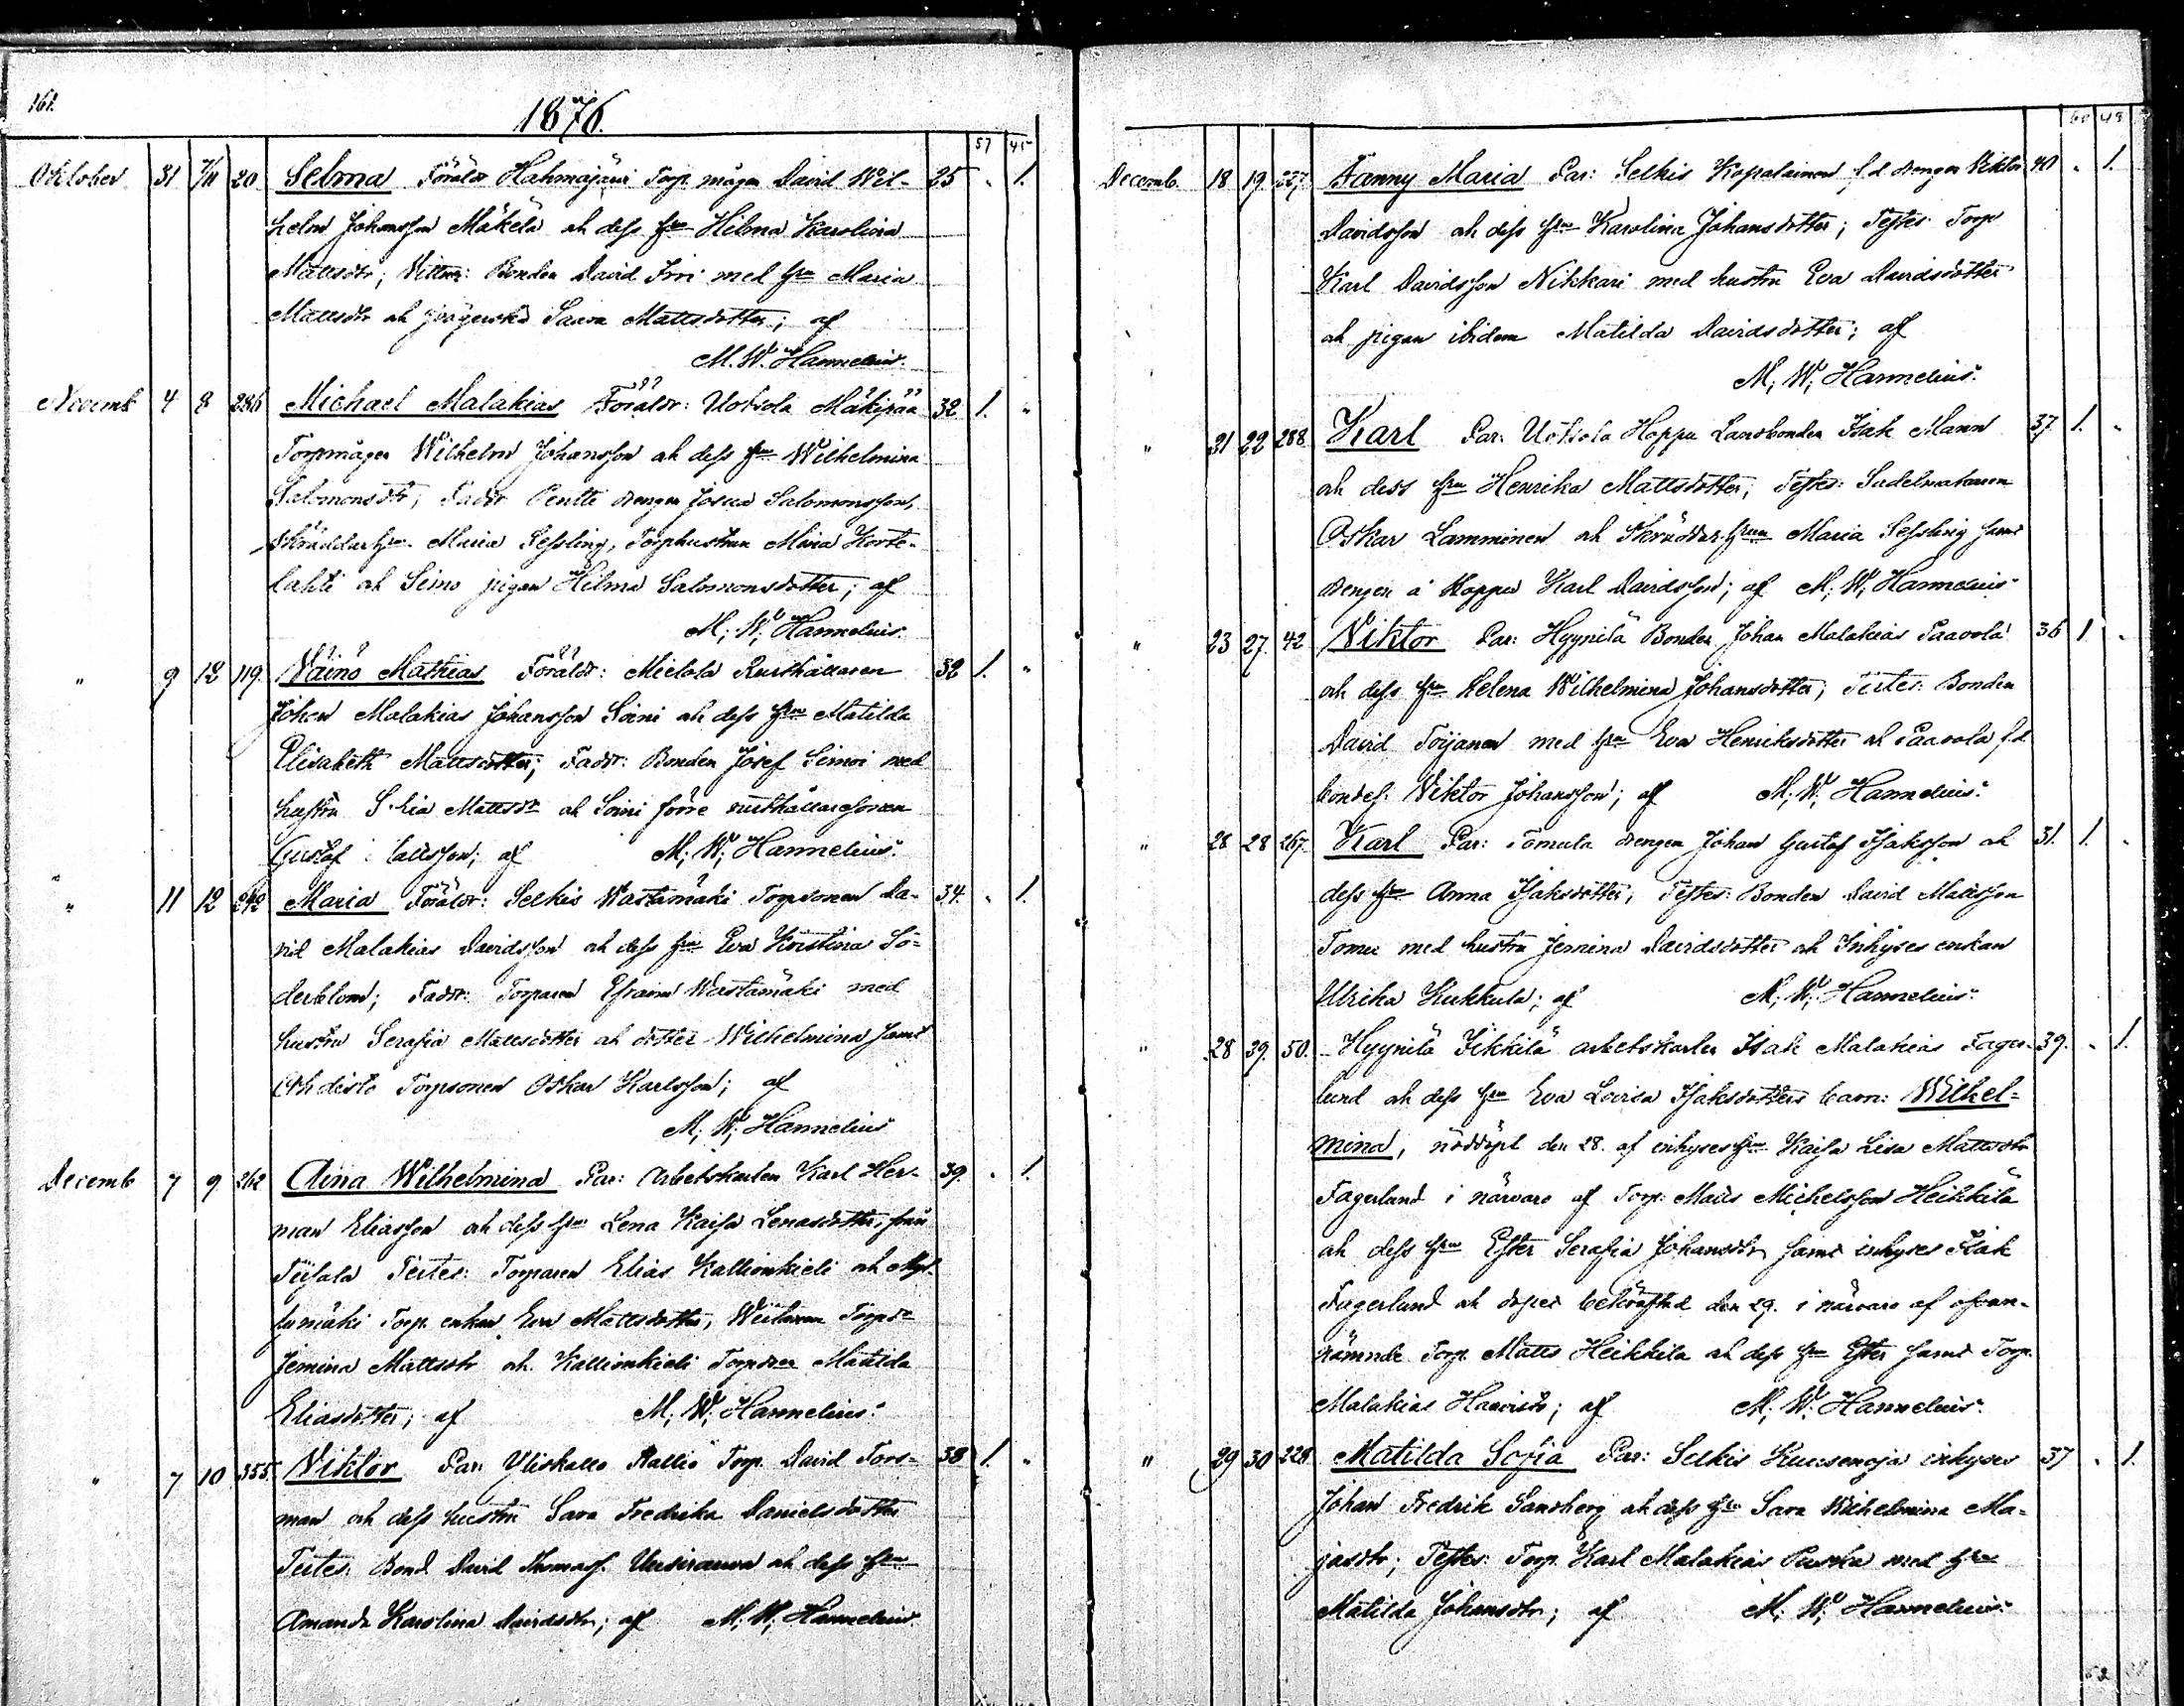 161.
1876.
57 45
Oktober 31 7/11 20 Selma Föräldr Hahmajärvi Torp. mågen David Wil- 25 " 1.
helm Johansson Mäkelä och dess hru Helma Karolina
Mattsdr; Vittnen: Bonden David Ivri med hru Maria
Mattsdr och Saara Mattsdotter; af
M. W. Hannelius.
Novemb 4 8 286 Michael Malakias Föräldr: Uotsola Mäkipää 32 1. "
Torpmågen Wilhelm Johansson och dess hru Wilhelmina
Salomonsdr; Faddr Pentti drengen Josua Salomonsson,
skräddarhru Maria Sessling, Torphustrun Maria Korte-
lahti och Simo pigan Hilma Salomonsdotter; af
M. W. Hannelius.
" 9 12 119. Väinö Mathias Föräldr: Mielola Rusthållaren 32 1. "
Johan Malakias Johansson Soini och dess hru Matilda
Elisabeth Mattsdotter; Faddr: Bonden Josef Simoi med
hustru Mattsdr och Soini förre rusthållaresonen
Gustaf Mattsson; af M. W. Hannelius.
" 11 12 242 Maria Föräldr: Selkis Wastamäki Torpsonen Da- 34. " 1.
vid Malakias Davidsson och dess hru Eva Kristina Sö-
derblom; Faddr: Torparen Efraim Wastamäki med
hustru Serafia Mattsdotter och dotter Wilhelmina samt
Torpsonen Oskar Karlsson; af
M. W. Hannelius
Decemb 7 9 262 Aina Wilhelmina Par: Arbetskarlen Karl Her- 39. " 1.
man Eliasson och dess hru Lena Kaisa Lenasdotter, från
Testes: Torparen Elias Kallionkieli och Myl-
lymäki Torp. enkan Eva Mattsdotter,
Jemina Mattsdr och Kallionkieli Matilda
Eliasdotter; af M. W. Hannelius.
" 7 10 355. Viktor Par: Yliskallo Kallio Torp. David Fors- 38 1. "
man och dess hustru Sara Fredrika Danielsdotter
Testes: Bond. David Thomass. Uusirauva och dess hru
Amanda Karolina Davidsdr; af M. W. Hannelius.
60 48
Decemb. 18 19. 227. Fanny Maria Par: Selkis Kopalainen f.d. drengen Viktor 40 " 1.
Davidsson och dess hru Karolina Johansdotter; Testes Torp
Karl Davidsson Nikkari med hustru Eva Davidsdotter
och pigan ibidem Matilda Davidsdotter; af
M. W. Hannelius.
" 21 22 288. Karl Par: Uotsola Hoppu Landbonden Isak Mann 37. 1. "
och dess hru Henrika Mattsdotter; Testes: Sadelmakaren
Oskar Lamminen och Skräddarhrun Maria Sessling samt
drengen å Hoppu Karl Davidsson; af M. W. Hannelius
" 23 27. 42 Viktor Par: Hyynilä Bonden Johan Malakias Paavola 36 1 "
och dess hru Helena Wilhelmina Johansdotter; Testes: Bonden
David Torjanen med hru Eva Henriksdotter och Paavola f.d.
bondes. Viktor Johansson; af M. W. Hannelius.
" 28 28 267. Karl Par: Tomula drengen Johan Gustaf Isaksson och 31. 1. "
dess hru Anna Isaksdotter; Testes: Bonden David Mattsson
Tomu med hustru Jemina Davidsdotter och Inhyses enkan
Ulrika Kukkula; af M. W. Hannelius.
" 28 29. 50. Hyynilä Heikkilä arbetskarlen Isak Malakias Fager- 39. " 1.
lund och dess hru Eva Lovisa Isaksdotters barn: Wilhel-
mina, nöddöpt den 28. af inhyses hru Kaisa Lisa Mattsdtr
Fagerlund i närvaro af Torp. Matts Michelsson Heikkilä
och dess hru Ester Serafia Johansdr samt inhyses Isak
Fagerlund och dopet bekräftad den 29. i närvaro af ofvan-
nämnde Torp. Matts Heikkilä och dess hru Ester samt Torp.
Malakias Haavisto; af M. W. Hannelius.
" 29 30 228 Matilda Sofia Par: Selkis Kuusenoja inhyses 37 " 1.
Johan Fredrik Sandberg och dess hru Sara Wilhelmina Ma-
jasdr; Testes: Torp. Karl Malakias Puska med hru
Matilda Johansdr; af M. W. Hannelius.